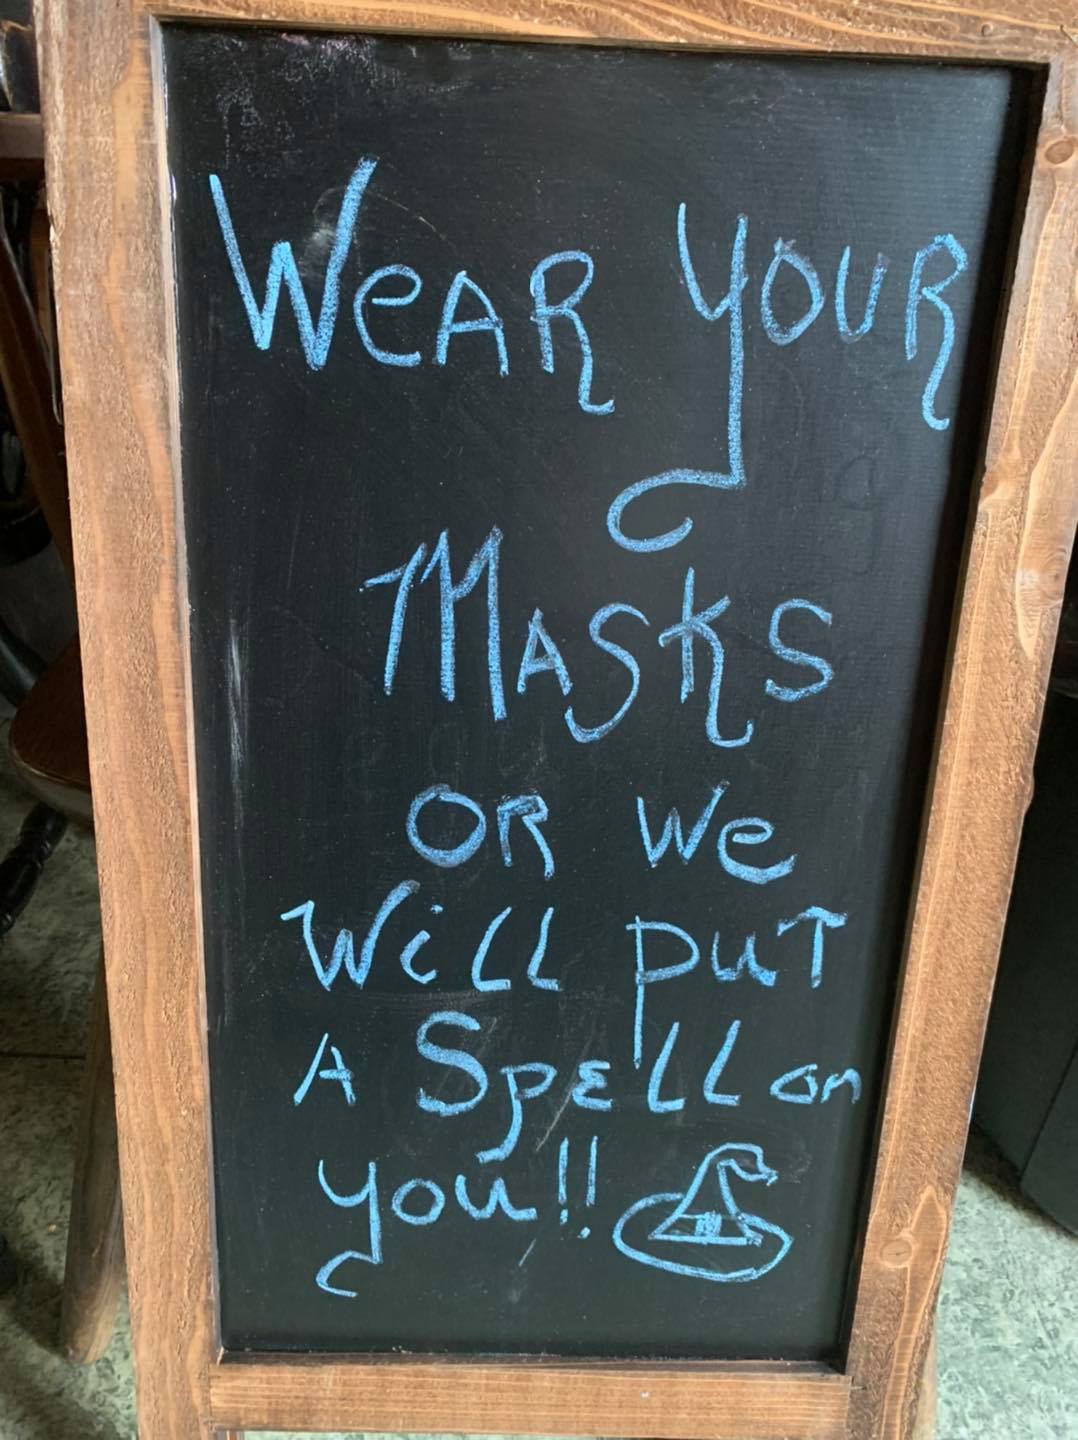 WeAR YOUR
MASKS
OR We
Will put
A Spell on
you!!